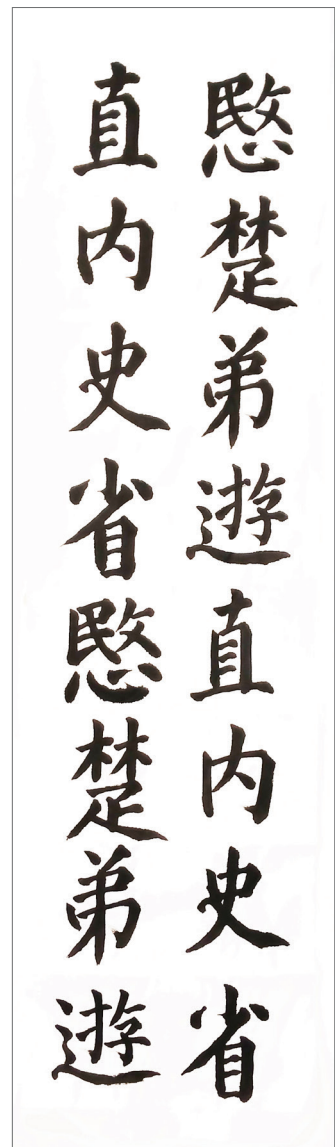 愍楚弟遊直内史省
直内史省愍楚弟遊